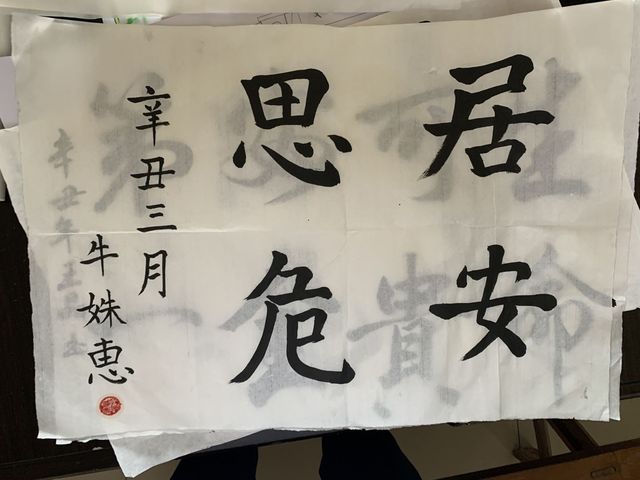 居安
思危
辛丑三月
牛姝恵